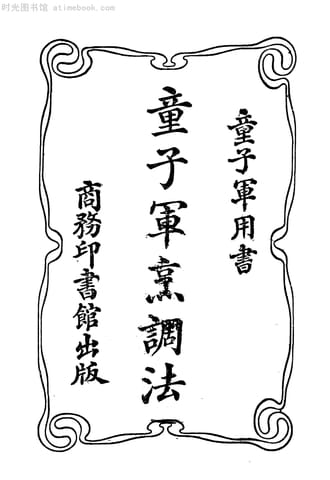 时光图书馆 atimebook.com
童子軍用書
童子軍烹調法
商務印書館出版